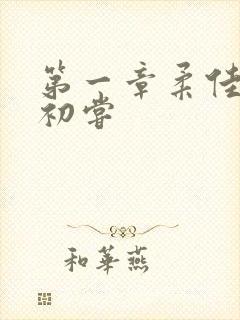 第一章柔佳
初嘗
和華燕